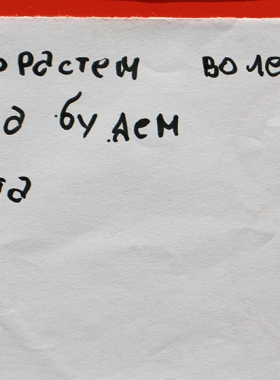 орастем воле
а будем
та